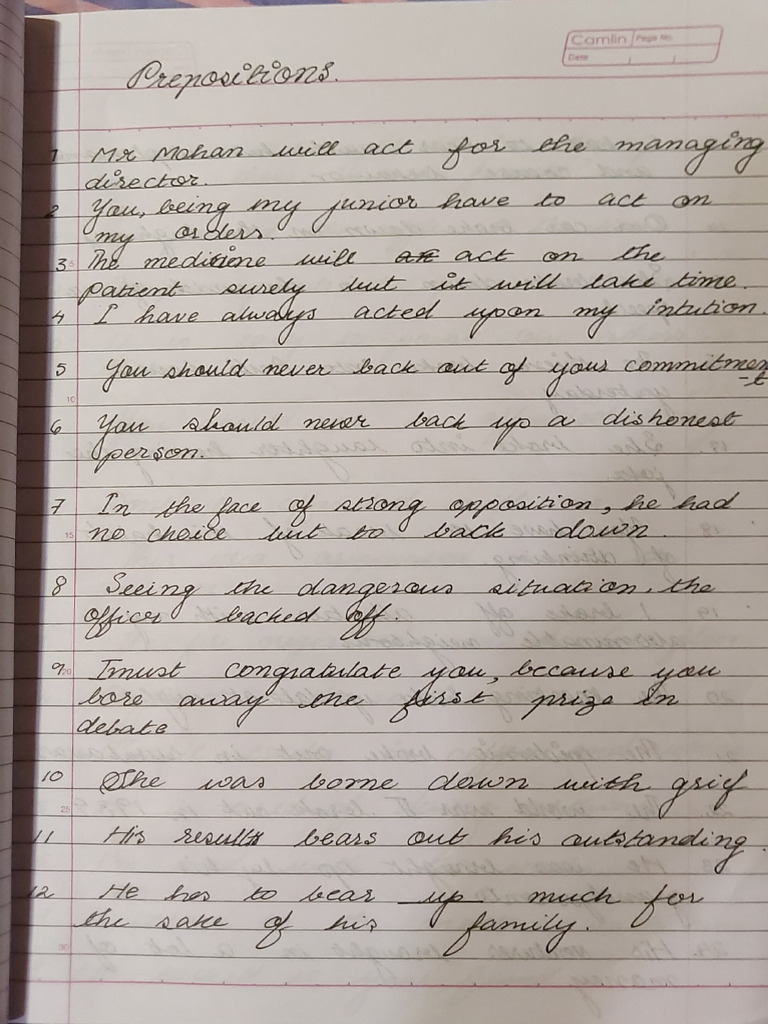 Camlin Page No.
Date
Prepositions.
1 Mr Mohan will act for the managing
director.
2 You, being my junior have to act on
my orders.
3 The medicine will act on the
patient surely but it will take time.
4 I have always acted upon my intution.
5 You should never back out of your commitmen
-t
6 You should never back up a dishonest
person.
7 In the face of strong opposition, he had
no choice but to back down.
8 Seeing the dangerous situation, the
officer backed off.
9 I must congratulate you, because you
bore away the first prize in
debate
10 She was borne down with grief
11 His results bears out his outstanding.
12 He has to bear up much for
the sake of his family.